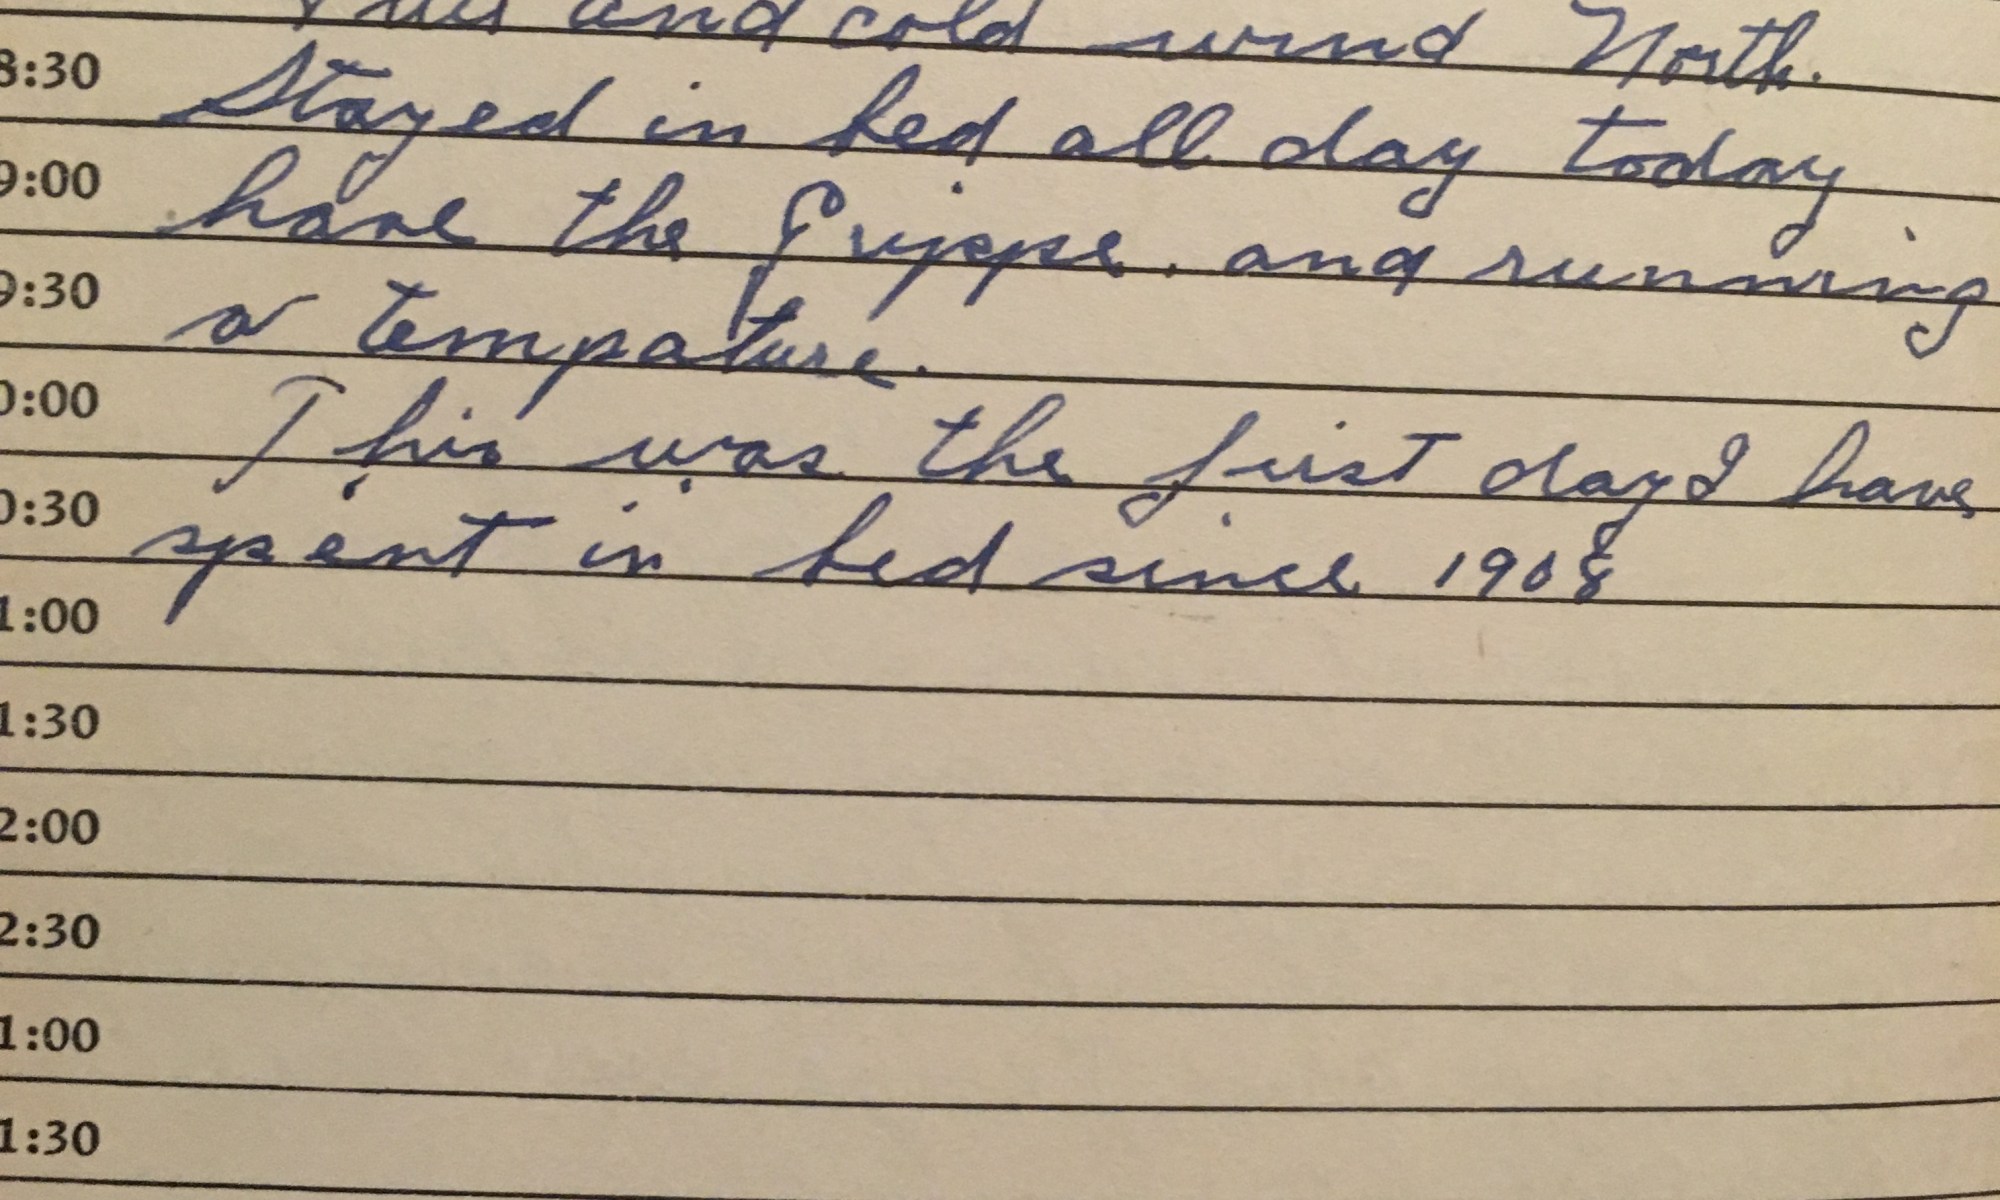 and cold wind North.
8:30 Stayed in bed all day today
9:00 have the Grippe. and running
9:30 a tempature.
0:00 This was the first day I have
0:30 spent in bed since 1908
1:00
1:30
2:00
2:30
1:00
1:30